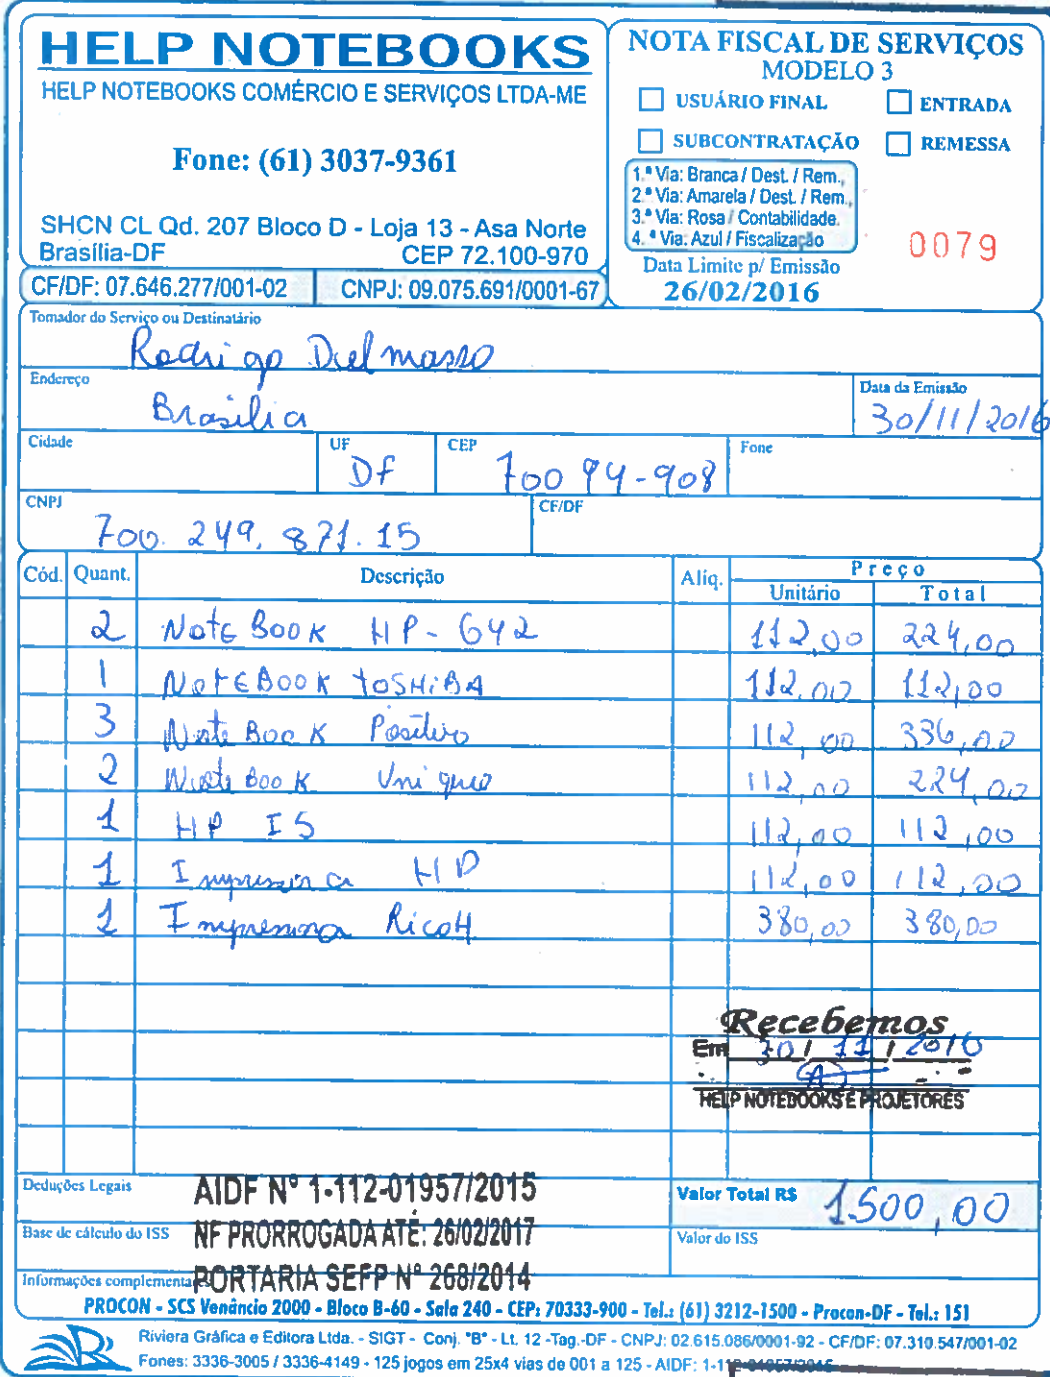 HELP NOTEBOOKS
HELP NOTEBOOKS COMÉRCIO E SERVIÇOS LTDA-ME
Fone: (61) 3037-9361
SHCN CL Qd. 207 Bloco D - Loja 13 - Asa Norte
Brasília-DF CEP 72.100-970
CF/DF: 07.646.277/001-02 CNPJ: 09.075.691/0001-67
NOTA FISCAL DE SERVIÇOS
MODELO 3
USUÁRIO FINAL ENTRADA
SUBCONTRATAÇÃO REMESSA
1.ª Via: Branca / Dest. / Rem.,
2.ª Via: Amarela / Dest. / Rem.,
3.ª Via: Rosa / Contabilidade.
4.ª Via: Azul / Fiscalização
0079
Data Limite p/ Emissão
26/02/2016
Tomador do Serviço ou Destinatário
Rodrigo Delmasso
Endereço Data da Emissão
Brasilia 30/11/2016
Cidade UF CEP Fone
DF 70094-908
CNPJ CF/DF
700.249.871.15
Cód. Quant. Descrição Alíq. Preço
Unitário Total
2 NoteBook HP-G42 112,00 224,00
1 NoteBook TOSHiBA 112,00 112,00
3 NoteBook Positivo 112,00 336,00
2 NoteBook Unique 112,00 224,00
1 HP I5 112,00 112,00
1 Impressora HP 112,00 112,00
1 Impressora RicoH 380,00 380,00
Recebemos
Em 30/11/2016
HELP NOTEBOOKS E PROJETORES
Deduções Legais AIDF Nº 1-112-01957/2015 Valor Total R$ 1.500,00
Base de cálculo do ISS NF PRORROGADA ATÉ: 26/02/2017 Valor do ISS
Informações complementa PORTARIA SEFP Nº 268/2014
PROCON - SCS Venâncio 2000 - Bloco B-60 - Sala 240 - CEP: 70333-900 - Tel.: (61) 3212-1500 - Procon-DF - Tel.: 151
Riviera Gráfica e Editora Ltda. - SIGT - Conj. "B" - Lt. 12 -Tag.-DF - CNPJ: 02.615.086/0001-92 - CF/DF: 07.310.547/001-02
Fones: 3336-3005 / 3336-4149 - 125 jogos em 25x4 vias de 001 a 125 - AIDF: 1-112-01957/2015